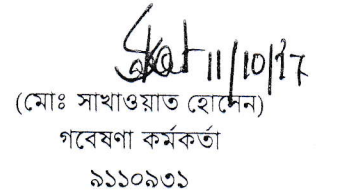 11/10/17
(মোঃ সাখাওয়াত হোসেন)
গবেষণা কর্মকর্তা
৯১১০৯৩১